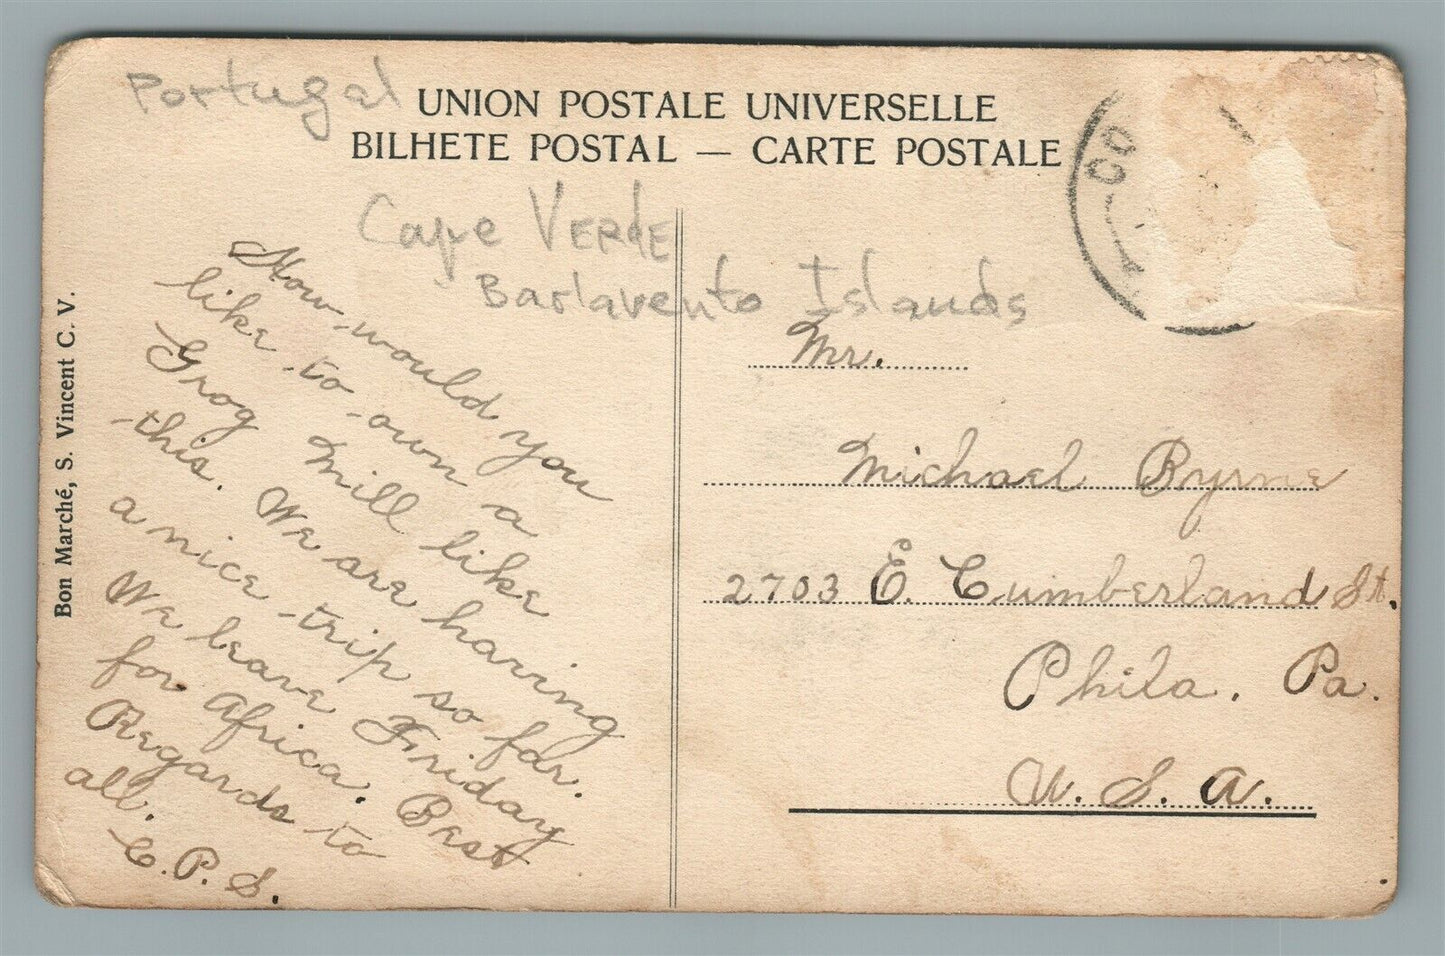 Portugal
UNION POSTALE UNIVERSELLE
BILHETE POSTAL — CARTE POSTALE
CO
Cape VERdE
Barlavento Islands
Bon Marché, S. Vincent C. V.
How would you
like to own a
Grog Mill like
this. We are having
a nice trip so far.
We leave Friday
for Africa. Best
Regards to
all.
C. P. S.
Mr.
Michael Byrne
2703 E. Cumberland St.
Phila. Pa.
U. S. A.